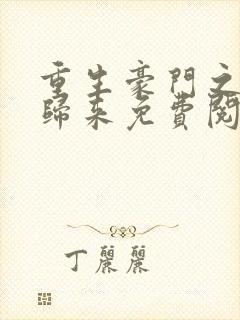 重生豪門之
歸來免費閱
丁麗麗